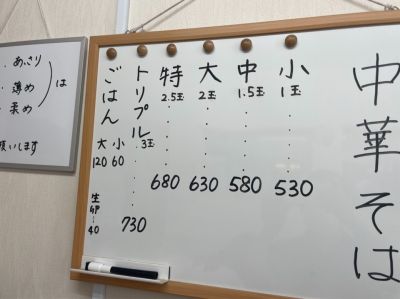 中華そば
小 1玉 530
中 1.5玉 580
大 2玉 630
特 2.5玉 680
トリプル 3玉 730
ごはん
小 60
大 120
生卵 40
・あっさり
・薄め
・柔め
は
願いします